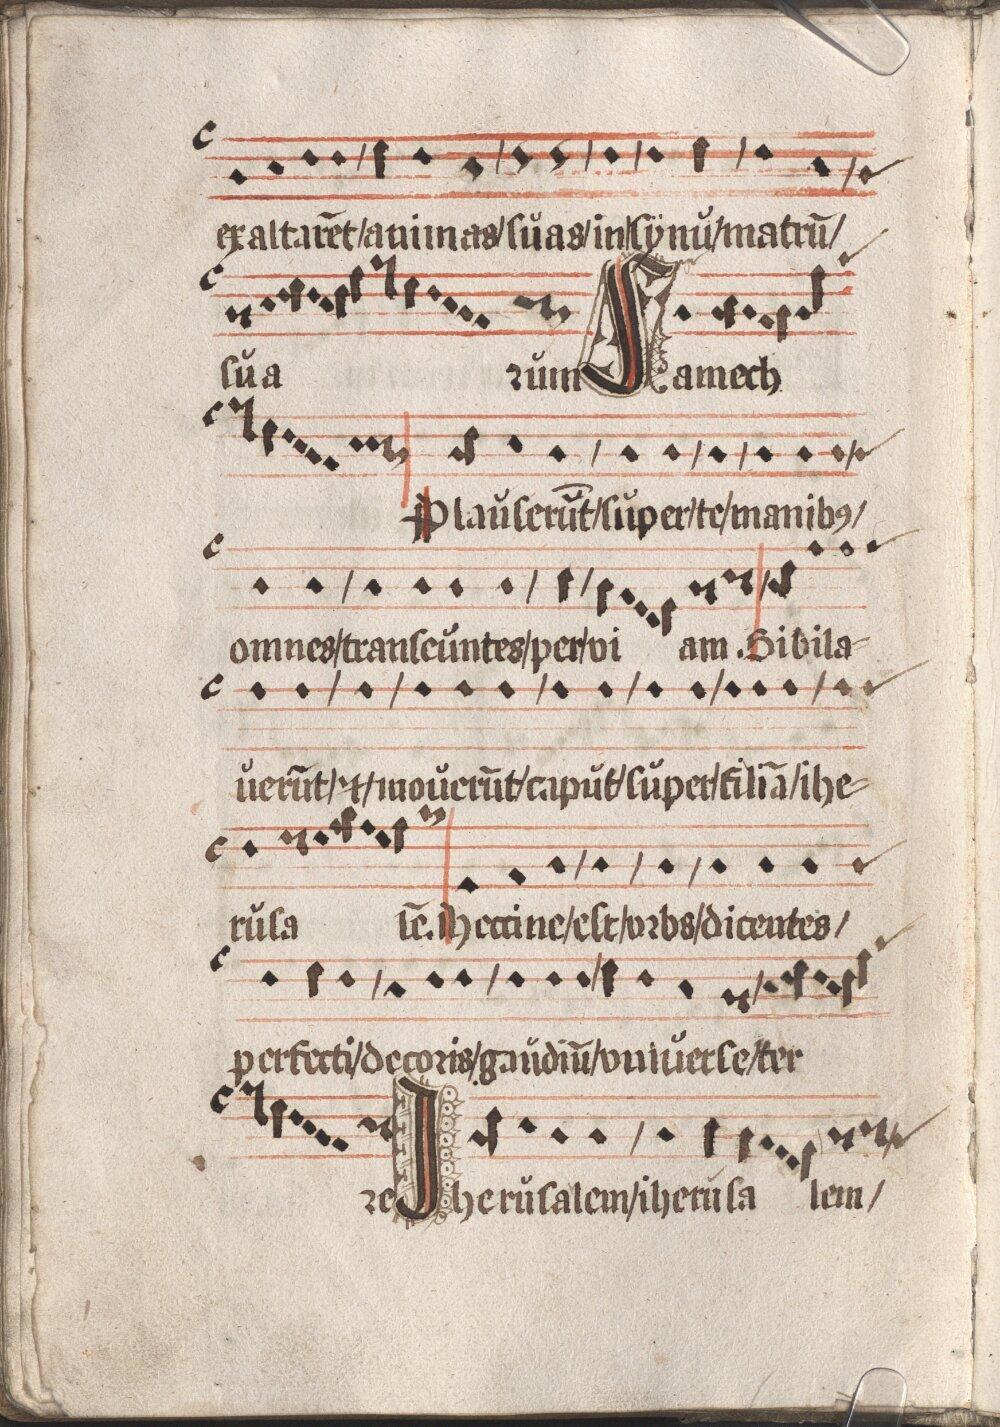 exaltarēt/animas/suas/in/synu/matrū/
sua rum Samech
Plauserūt/super/te/manibꝯ/
omnes/transeuntes/per/vi am. Sibila-
uerūt/et/mouerūt/caput/super/filiā/ihe-
rusa lē. Heccine/est/vrbs/dicentes/
perfecti/decoris/gaudiū/vniuerse/ter
re Iherusalem/iherusa lem/